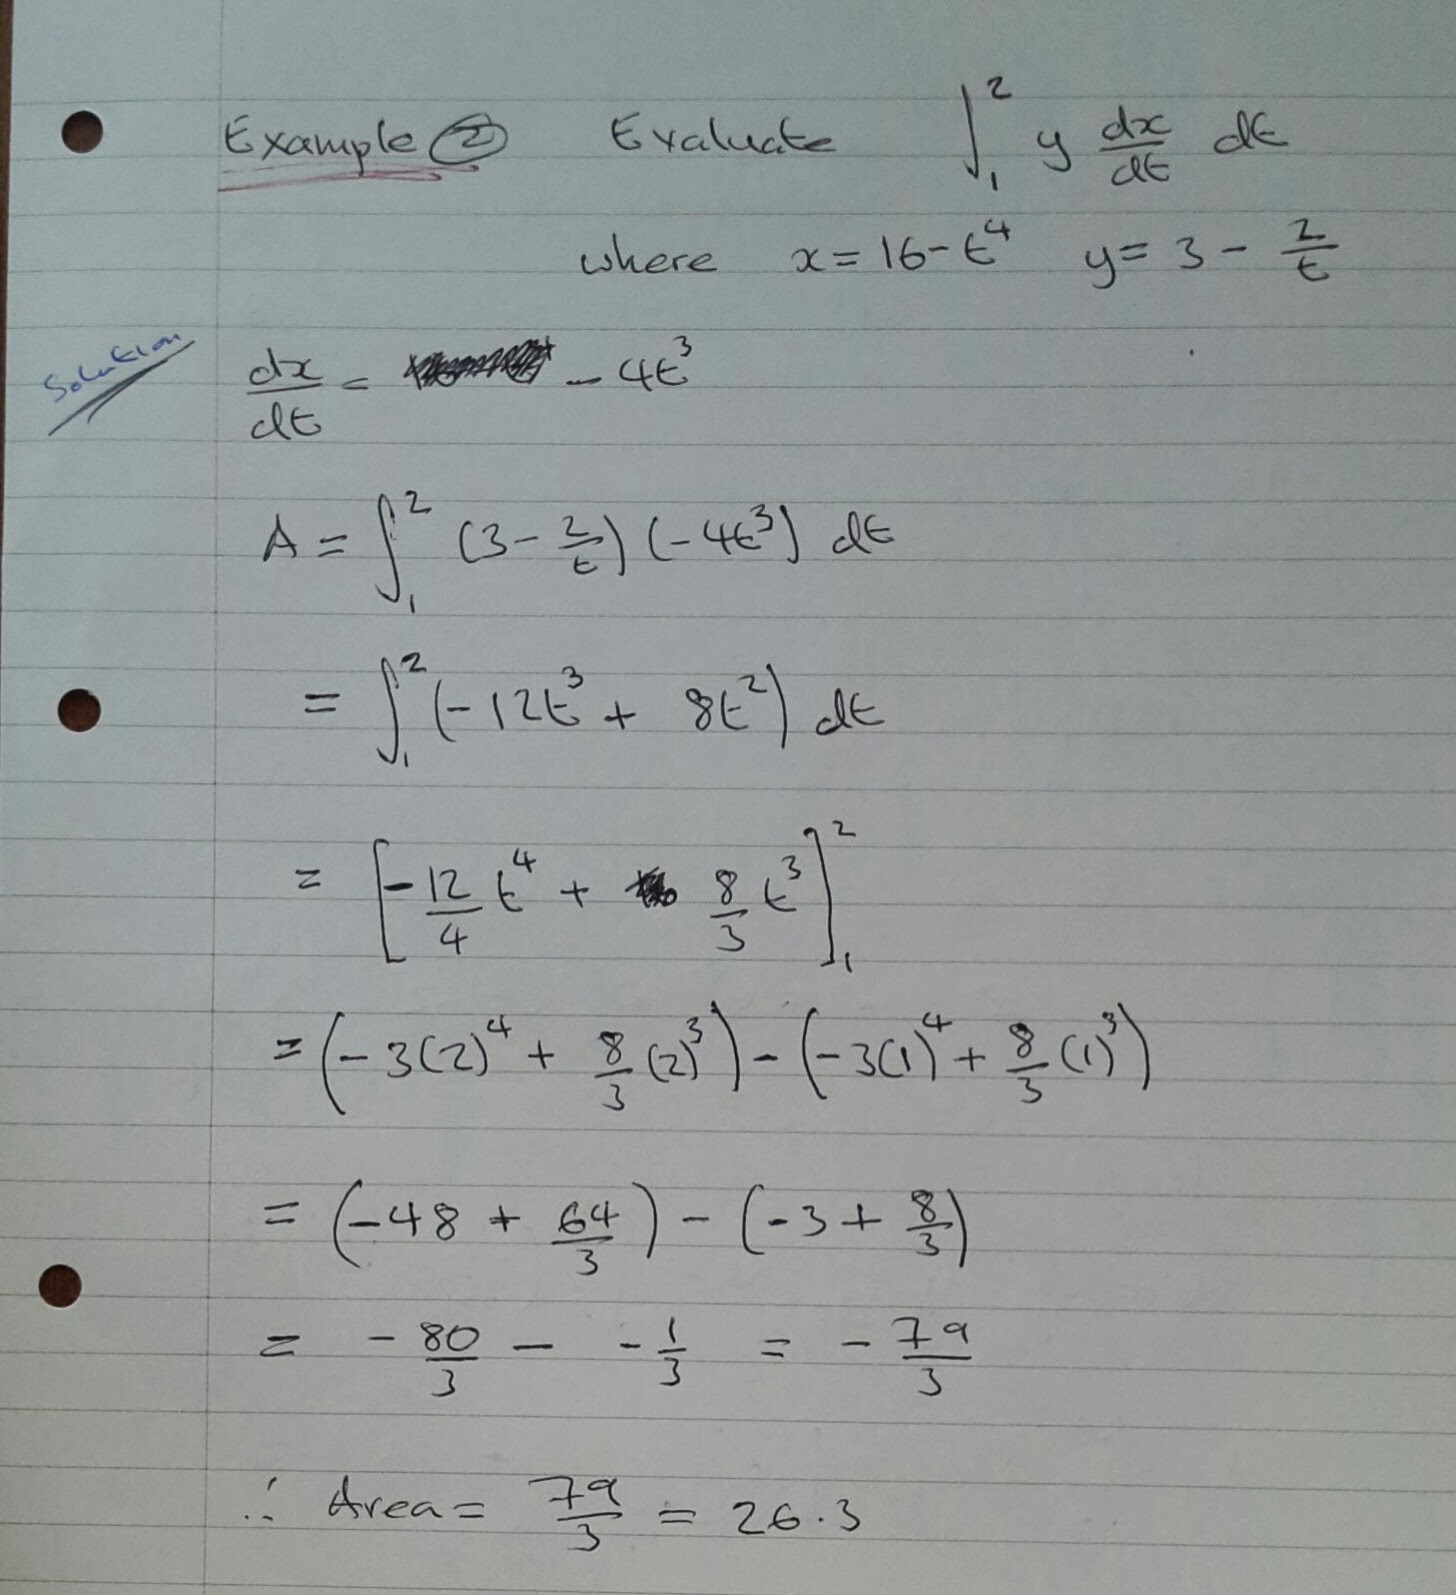 Example ② Evaluate ∫₁² y dx/dt dt
where x = 16 - t⁴ y = 3 - 2/t
Solution
dx/dt = - 4t³
A = ∫₁² (3 - 2/t) (-4t³) dt
= ∫₁² (-12t³ + 8t²) dt
= [-12/4 t⁴ + 8/3 t³]₁²
= (-3(2)⁴ + 8/3 (2)³) - (-3(1)⁴ + 8/3 (1)³)
= (-48 + 64/3) - (-3 + 8/3)
= -80/3 - -1/3 = -79/3
∴ Area = 79/3 = 26.3